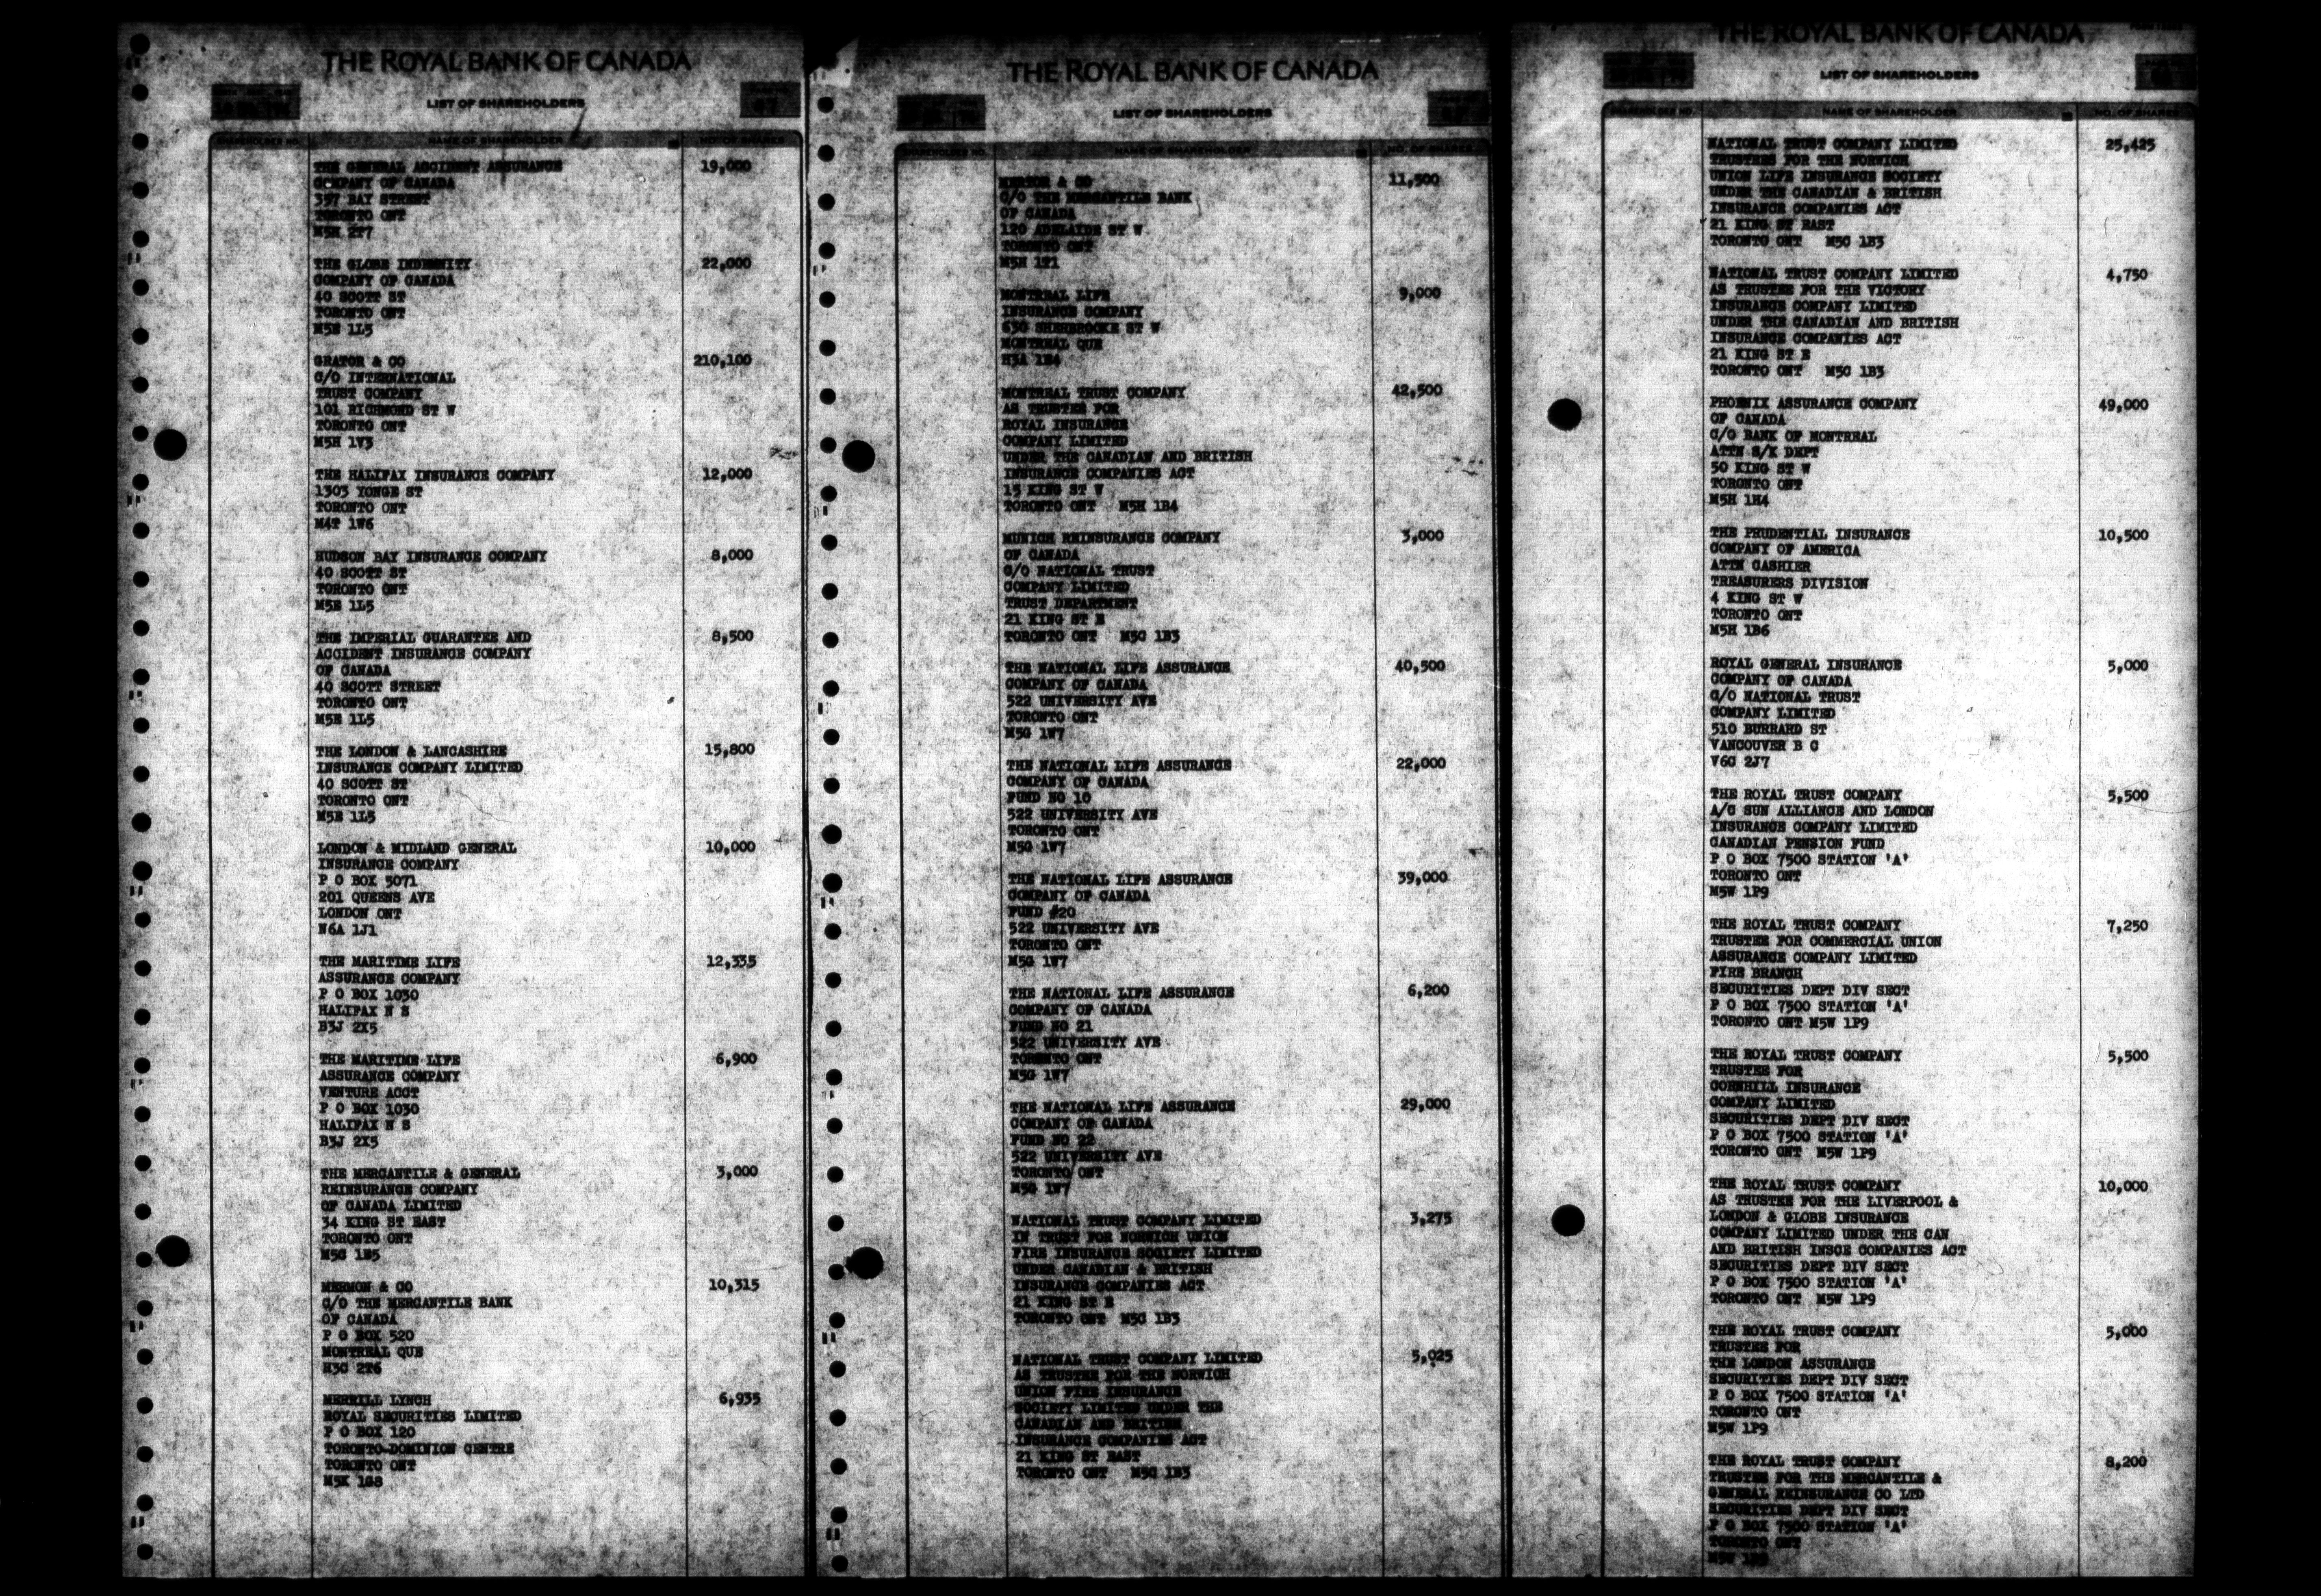 THE ROYAL BANK OF CANADA
LIST OF SHAREHOLDERS
67
SHAREHOLDER NO. NAME OF SHAREHOLDER NO. OF SHARES
THE GENERAL ACCIDENT ASSURANCE 19,000
COMPANY OF CANADA
357 BAY STREET
TORONTO ONT
M5H 2T7
THE GLOBE INDEMNITY 22,000
COMPANY OF CANADA
40 SCOTT ST
TORONTO ONT
M5E 1L5
GRATOR & CO 210,100
C/O INTERNATIONAL
TRUST COMPANY
101 RICHMOND ST W
TORONTO ONT
M5H 1V3
THE HALIFAX INSURANCE COMPANY 12,000
1303 YONGE ST
TORONTO ONT
M4T 1W6
HUDSON BAY INSURANCE COMPANY 8,000
40 SCOTT ST
TORONTO ONT
M5E 1L5
THE IMPERIAL GUARANTEE AND 8,500
ACCIDENT INSURANCE COMPANY
OF CANADA
40 SCOTT STREET
TORONTO ONT
M5E 1L5
THE LONDON & LANCASHIRE 15,800
INSURANCE COMPANY LIMITED
40 SCOTT ST
TORONTO ONT
M5E 1L5
LONDON & MIDLAND GENERAL 10,000
INSURANCE COMPANY
P O BOX 5071
201 QUEENS AVE
LONDON ONT
N6A 1J1
THE MARITIME LIFE 12,335
ASSURANCE COMPANY
P O BOX 1030
HALIFAX N S
B3J 2X5
THE MARITIME LIFE 6,900
ASSURANCE COMPANY
VENTURE ACCT
P O BOX 1030
HALIFAX N S
B3J 2X5
THE MERCANTILE & GENERAL 3,000
REINSURANCE COMPANY
OF CANADA LIMITED
34 KING ST EAST
TORONTO ONT
M5C 1E5
MERMON & CO 10,315
C/O THE MERCANTILE BANK
OF CANADA
P O BOX 520
MONTREAL QUE
H3C 2T6
MERRILL LYNCH 6,935
ROYAL SECURITIES LIMITED
P O BOX 120
TORONTO-DOMINION CENTRE
TORONTO ONT
M5K 1G8
THE ROYAL BANK OF CANADA
LIST OF SHAREHOLDERS
SHAREHOLDER NO. NAME OF SHAREHOLDER NO. OF SHARES
MERTOR & CO 11,500
C/O THE MERCANTILE BANK
OF CANADA
120 ADELAIDE ST W
TORONTO ONT
M5H 1T1
MONTREAL LIFE 9,000
INSURANCE COMPANY
630 SHERBROOKE ST W
MONTREAL QUE
H3A 1E4
MONTREAL TRUST COMPANY 42,500
AS TRUSTEE FOR
ROYAL INSURANCE
COMPANY LIMITED
UNDER THE CANADIAN AND BRITISH
INSURANCE COMPANIES ACT
15 KING ST W
TORONTO ONT M5H 1B4
MUNICH REINSURANCE COMPANY 3,000
OF CANADA
C/O NATIONAL TRUST
COMPANY LIMITED
TRUST DEPARTMENT
21 KING ST E
TORONTO ONT M5C 1B3
THE NATIONAL LIFE ASSURANCE 40,500
COMPANY OF CANADA
522 UNIVERSITY AVE
TORONTO ONT
M5G 1W7
THE NATIONAL LIFE ASSURANCE 22,000
COMPANY OF CANADA
FUND NO 10
522 UNIVERSITY AVE
TORONTO ONT
M5G 1W7
THE NATIONAL LIFE ASSURANCE 39,000
COMPANY OF CANADA
FUND #20
522 UNIVERSITY AVE
TORONTO ONT
M5G 1W7
THE NATIONAL LIFE ASSURANCE 6,200
COMPANY OF CANADA
FUND NO 21
522 UNIVERSITY AVE
TORONTO ONT
M5G 1W7
THE NATIONAL LIFE ASSURANCE 29,000
COMPANY OF CANADA
FUND NO 22
522 UNIVERSITY AVE
TORONTO ONT
M5G 1W7
NATIONAL TRUST COMPANY LIMITED 3,275
IN TRUST FOR NORWICH UNION
FIRE INSURANCE SOCIETY LIMITED
UNDER CANADIAN & BRITISH
INSURANCE COMPANIES ACT
21 KING ST E
TORONTO ONT M5C 1B3
NATIONAL TRUST COMPANY LIMITED 5,025
AS TRUSTEE FOR THE NORWICH
UNION FIRE INSURANCE
SOCIETY LIMITED UNDER THE
CANADIAN AND BRITISH
INSURANCE COMPANIES ACT
21 KING ST EAST
TORONTO ONT M5C 1B3
THE ROYAL BANK OF CANADA
LIST OF SHAREHOLDERS
SHAREHOLDER NO. NAME OF SHAREHOLDER NO. OF SHARES
NATIONAL TRUST COMPANY LIMITED 25,425
TRUSTEES FOR THE NORWICH
UNION LIFE INSURANCE SOCIETY
UNDER THE CANADIAN & BRITISH
INSURANCE COMPANIES ACT
21 KING ST EAST
TORONTO ONT M5C 1B3
NATIONAL TRUST COMPANY LIMITED 4,750
AS TRUSTEE FOR THE VICTORY
INSURANCE COMPANY LIMITED
UNDER THE CANADIAN AND BRITISH
INSURANCE COMPANIES ACT
21 KING ST E
TORONTO ONT M5C 1B3
PHOENIX ASSURANCE COMPANY 49,000
OF CANADA
C/O BANK OF MONTREAL
ATTN S/K DEPT
50 KING ST W
TORONTO ONT
M5H 1H4
THE PRUDENTIAL INSURANCE 10,500
COMPANY OF AMERICA
ATTN CASHIER
TREASURERS DIVISION
4 KING ST W
TORONTO ONT
M5H 1B6
ROYAL GENERAL INSURANCE 5,000
COMPANY OF CANADA
C/O NATIONAL TRUST
COMPANY LIMITED
510 BURRARD ST
VANCOUVER B C
V6C 2J7
THE ROYAL TRUST COMPANY 5,500
A/C SUN ALLIANCE AND LONDON
INSURANCE COMPANY LIMITED
CANADIAN PENSION FUND
P O BOX 7500 STATION 'A'
TORONTO ONT
M5W 1P9
THE ROYAL TRUST COMPANY 7,250
TRUSTEE FOR COMMERCIAL UNION
ASSURANCE COMPANY LIMITED
FIRE BRANCH
SECURITIES DEPT DIV SECT
P O BOX 7500 STATION 'A'
TORONTO ONT M5W 1P9
THE ROYAL TRUST COMPANY 5,500
TRUSTEE FOR
CORNHILL INSURANCE
COMPANY LIMITED
SECURITIES DEPT DIV SECT
P O BOX 7500 STATION 'A'
TORONTO ONT M5W 1P9
THE ROYAL TRUST COMPANY 10,000
AS TRUSTEE FOR THE LIVERPOOL &
LONDON & GLOBE INSURANCE
COMPANY LIMITED UNDER THE CAN
AND BRITISH INSCE COMPANIES ACT
SECURITIES DEPT DIV SECT
P O BOX 7500 STATION 'A'
TORONTO ONT M5W 1P9
THE ROYAL TRUST COMPANY 5,000
TRUSTEE FOR
THE LONDON ASSURANCE
SECURITIES DEPT DIV SECT
P O BOX 7500 STATION 'A'
TORONTO ONT
M5W 1P9
THE ROYAL TRUST COMPANY 8,200
TRUSTEE FOR THE MERCANTILE &
GENERAL REINSURANCE CO LTD
SECURITIES DEPT DIV SECT
P O BOX 7500 STATION 'A'
TORONTO ONT
M5W 1P9